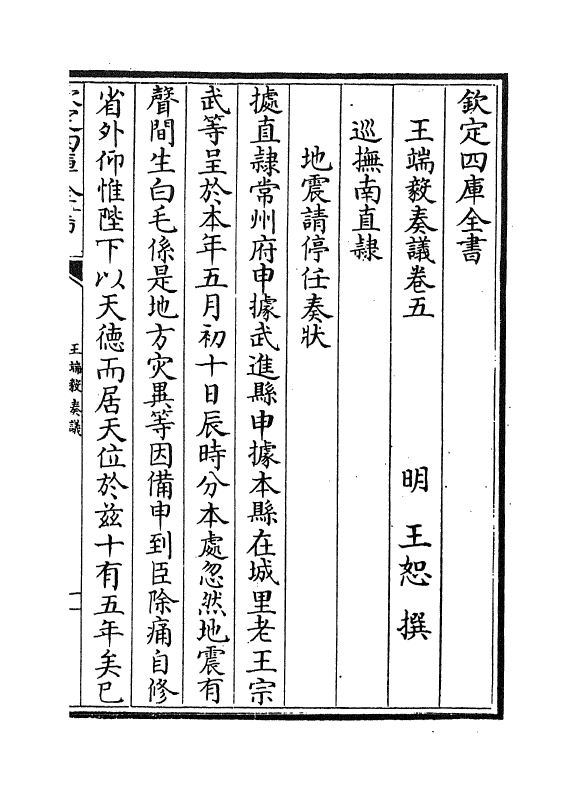 欽定四庫全書
王端毅奏議卷五
明王恕撰
巡撫南直隸
地震請停任奏狀
據直隸常州府申據武進縣申據本縣在城里老王宗
武等呈於本年五月初十日辰時分本處忽然地震有
聲間生白毛係是地方灾異等因備申到臣除痛自修
省外仰惟陛下以天徳而居天位於兹十有五年矣已
欽定四庫全書
王端毅奏議
一